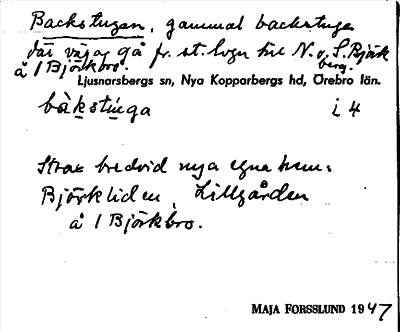 Backstugan, gammal backstuga
där vägar gå fr. st. logn till N. o. S. Björk
berg.
å 1 Björkbro.
Ljusnarsbergs sn, Nya Kopparbergs hd, Örebro län.
bàkstúga i 4
Strax bredvid nya egna hem:
Björkliden, Lillgården
å 1 Björkbro.
MAJA FORSSLUND 1947